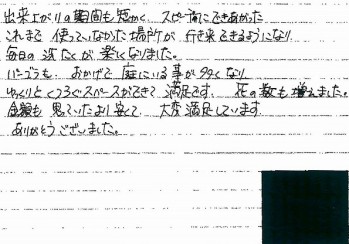 出来上がりの期間も短かく、スピーディーにできあがった
これまで使っていなかった場所が行き来できるようになり、
毎日の洗たくが楽になりました。
パーゴラも、おかげで庭にいる事が多くなり
ゆっくりとくつろぐスペースができて満足です。花の数も増えました。
金額も思っていたより安くて、大変満足しています。
ありがとうございました。